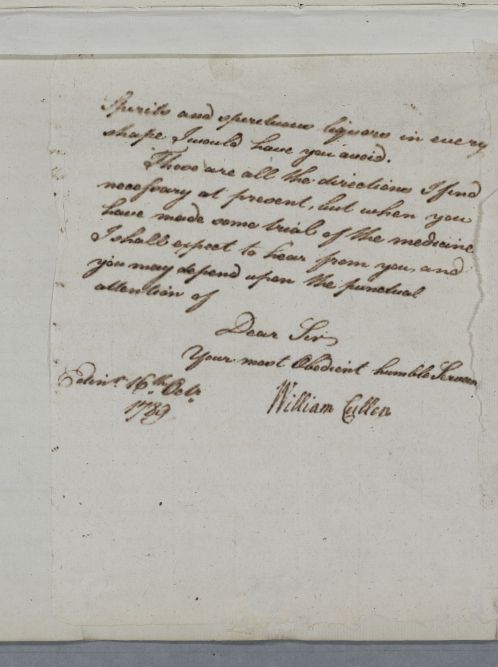 Spirits and spirituous liquors in every
shape I would have you avoid.
These are all the directions I find
necessary at present, but when you
have made some trial of the medicine
I shall expect to hear from you, and
you may depend upon the punctual
attention of
Dear Sir
Your most Obedient humble Servan
Edinr. 16th. Octr.
1789
William Cullen